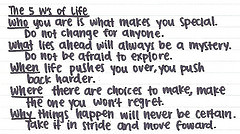 The 5 Ws of Life
Who you are is what makes you special.
Do not change for anyone.
What lies ahead will always be a mystery.
Do not be afraid to explore.
When life pushes you over, you push
back harder.
Where there are choices to make, make
the one you won't regret.
Why things happen will never be certain.
Take it in stride and move forward.